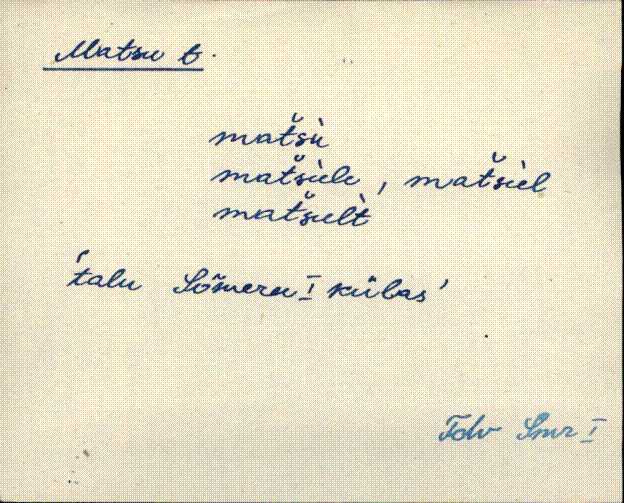 Matsu t.
mat̆sù
mat̆sùle, mat̆sùl
mat̆sult̀
'talu Sõmeru I külas'
Tdv Smr I